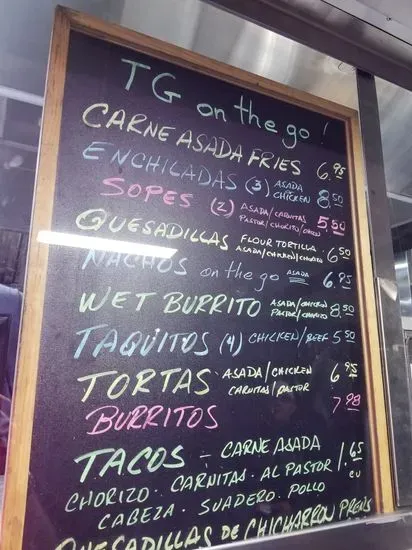 TG on the go!
CARNE ASADA FRIES 6.95
ENCHILADAS (3) ASADA CHICKEN 8.50
SOPES (2) ASADA/CARNITAS PASTOR/CHORIZO/CHICKEN 5.50
QUESADILLAS FLOUR TORTILLA. ASADA/CHICKEN/CHORIZO 6.50
NACHOS on the go ASADA 6.95
WET BURRITO ASADA/CHICKEN PASTOR/CARNITAS 8.50
TAQUITOS (4) CHICKEN/BEEF 5.50
TORTAS ASADA/CHICKEN CARNITAS/PASTOR 6.95
BURRITOS 7.98
TACOS - CARNE ASADA 1.65
CHORIZO. CARNITAS. AL PASTOR
CABEZA. SUADERO. POLLO
QUESADILLAS DE CHICHARRON